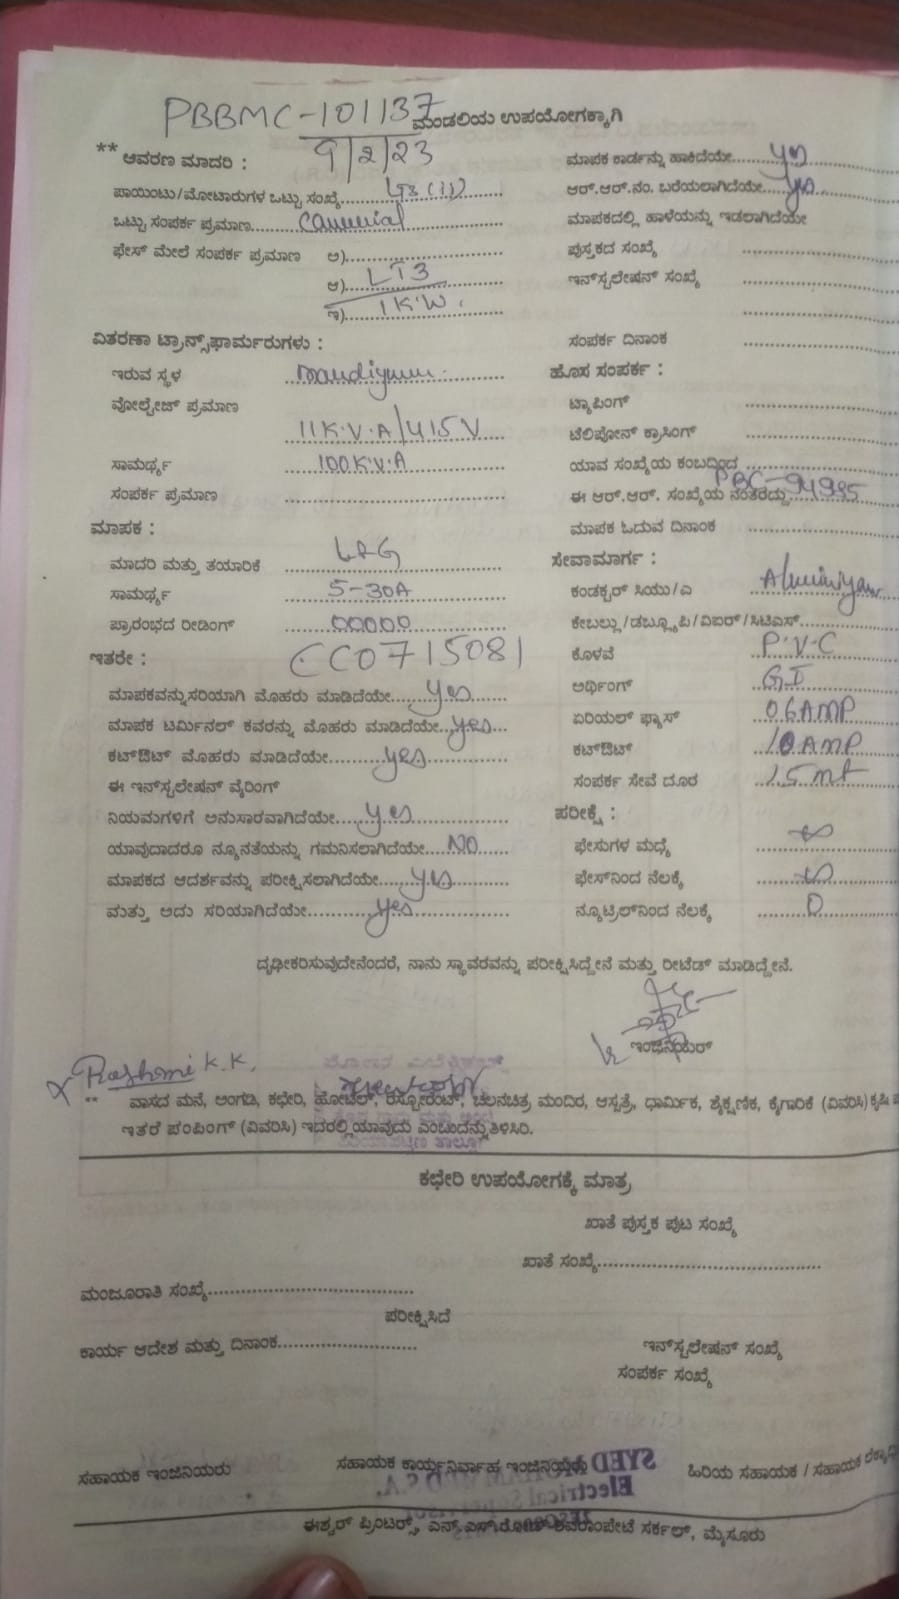 PBBMC-101137
ಮಂಡಲಿಯ ಉಪಯೋಗಕ್ಕಾಗಿ
** ಆವರಣ ಮಾದರಿ : 9/2/23
ಮಾಪಕ ಕಾರ್ಡನ್ನು ಹಾಕಿದೆಯೇ..... yes
ಪಾಯಿಂಟು/ಮೋಟಾರುಗಳ ಒಟ್ಟು ಸಂಖ್ಯೆ..... LT3 (ii)
ಆರ್.ಆರ್.ನಂ. ಬರೆಯಲಾಗಿದೆಯೇ..... yes
ಒಟ್ಟು ಸಂಪರ್ಕ ಪ್ರಮಾಣ.....
ಮಾಪಕದಲ್ಲಿ ಹಾಳೆಯನ್ನು ಇಡಲಾಗಿದೆಯೇ
ಫೇಸ್ ಮೇಲೆ ಸಂಪರ್ಕ ಪ್ರಮಾಣ ಅ).....
ಪುಸ್ತಕದ ಸಂಖ್ಯೆ .....
ಆ)..... LT3
ಇನ್‌ಸ್ಟಲೇಷನ್ ಸಂಖ್ಯೆ .....
ಇ)..... 1 K.W.
ವಿತರಣಾ ಟ್ರಾನ್ಸ್‌ಫಾರ್ಮರುಗಳು :
ಸಂಪರ್ಕ ದಿನಾಂಕ .....
ಇರುವ ಸ್ಥಳ .....
ಹೊಸ ಸಂಪರ್ಕ :
ವೋಲ್ಟೇಜ್ ಪ್ರಮಾಣ
ಟ್ಯಾಪಿಂಗ್ .....
11K.V.A/415V
ಟೆಲಿಪೋನ್ ಕ್ರಾಸಿಂಗ್ .....
ಸಾಮರ್ಥ್ಯ ..... 100K.V.A
ಯಾವ ಸಂಖ್ಯೆಯ ಕಂಬದ್ದಿಂದ .....
ಸಂಪರ್ಕ ಪ್ರಮಾಣ .....
ಈ ಆರ್.ಆರ್. ಸಂಖ್ಯೆಯ ನಂತರದ್ದು..... PBC-94995
ಮಾಪಕ :
ಮಾಪಕ ಓದುವ ದಿನಾಂಕ .....
ಮಾದರಿ ಮತ್ತು ತಯಾರಿಕೆ ..... L&G
ಸೇವಾಮಾರ್ಗ :
ಸಾಮರ್ಥ್ಯ ..... 5-30A
ಕಂಡಕ್ಟರ್ ಸಿಯು/ಎ ..... Aluminiyam
ಪ್ರಾರಂಭದ ರೀಡಿಂಗ್ ..... 00000
ಕೇಬಲ್ಲು/ಡಬ್ಲ್ಯೂಪಿ/ವಿಐರ್/ಸಿಟಿಎಸ್.....
ಇತರೇ : CC0715081
ಕೊಳವೆ ..... P.V.C
ಮಾಪಕವನ್ನು ಸರಿಯಾಗಿ ಮೊಹರು ಮಾಡಿದೆಯೇ..... yes
ಅರ್ಥಿಂಗ್ ..... GI
ಮಾಪಕ ಟರ್ಮಿನಲ್ ಕವರನ್ನು ಮೊಹರು ಮಾಡಿದೆಯೇ..... yes
ಏರಿಯಲ್ ಫ್ಯೂಸ್ ..... 06AMP
ಕಟ್‌ಔಟ್ ಮೊಹರು ಮಾಡಿದೆಯೇ..... yes
ಕಟ್‌ಔಟ್ ..... 10AMP
ಈ ಇನ್‌ಸ್ಟಲೇಷನ್ ವೈರಿಂಗ್
ಸಂಪರ್ಕ ಸೇವೆ ದೂರ ..... 15 mt
ನಿಯಮಗಳಿಗೆ ಅನುಸಾರವಾಗಿದೆಯೇ..... yes
ಪರೀಕ್ಷೆ :
ಯಾವುದಾದರೂ ನ್ಯೂನತೆಯನ್ನು ಗಮನಿಸಲಾಗಿದೆಯೇ..... NO
ಫೇಸುಗಳ ಮಧ್ಯೆ .....
ಮಾಪಕದ ಆದರ್ಶವನ್ನು ಪರೀಕ್ಷಿಸಲಾಗಿದೆಯೇ..... yes
ಫೇಸ್‌ನಿಂದ ನೆಲಕ್ಕೆ .....
ಮತ್ತು ಅದು ಸರಿಯಾಗಿದೆಯೇ..... yes
ನ್ಯೂಟ್ರಿಲ್‌ನಿಂದ ನೆಲಕ್ಕೆ ..... 0
ದೃಢೀಕರಿಸುವುದೇನೆಂದರೆ, ನಾನು ಸ್ಥಾವರವನ್ನು ಪರೀಕ್ಷಿಸಿದ್ದೇನೆ ಮತ್ತು ರೀಟೆಡ್ ಮಾಡಿದ್ದೇನೆ.
ಇಂಜಿನಿಯರ್
Rashmi K.K.
** ವಾಸದ ಮನೆ, ಅಂಗಡಿ, ಕಛೇರಿ, ಹೋಟೆಲ್, ರೆಸ್ಟೋರೆಂಟ್, ಚಲನಚಿತ್ರ ಮಂದಿರ, ಆಸ್ಪತ್ರೆ, ಧಾರ್ಮಿಕ, ಶೈಕ್ಷಣಿಕ, ಕೈಗಾರಿಕೆ (ವಿವರಿಸಿ) ಕೃಷಿ
ಇತರೆ ಪಂಪಿಂಗ್ (ವಿವರಿಸಿ) ಇದರಲ್ಲಿ ಯಾವುದು ಎಂಬುದನ್ನು ತಿಳಿಸಿರಿ.
ಕಛೇರಿ ಉಪಯೋಗಕ್ಕೆ ಮಾತ್ರ
ಖಾತೆ ಪುಸ್ತಕ ಪುಟ ಸಂಖ್ಯೆ
ಖಾತೆ ಸಂಖ್ಯೆ.....
ಮಂಜೂರಾತಿ ಸಂಖ್ಯೆ.....
ಪರೀಕ್ಷಿಸಿದೆ
ಕಾರ್ಯ ಆದೇಶ ಮತ್ತು ದಿನಾಂಕ.....
ಇನ್‌ಸ್ಟಲೇಷನ್ ಸಂಖ್ಯೆ
ಸಂಪರ್ಕ ಸಂಖ್ಯೆ
ಸಹಾಯಕ ಇಂಜಿನಿಯರು
ಸಹಾಯಕ ಕಾರ್ಯನಿರ್ವಾಹ ಇಂಜಿನಿಯರು
ಹಿರಿಯ ಸಹಾಯಕ / ಸಹಾಯಕ
ಈಶ್ವರ್ ಪ್ರಿಂಟರ್ಸ್, ಎನ್.ಎಸ್.ರೋಡ್ ಶಿವರಾಂಪೇಟೆ ಸರ್ಕಲ್, ಮೈಸೂರು